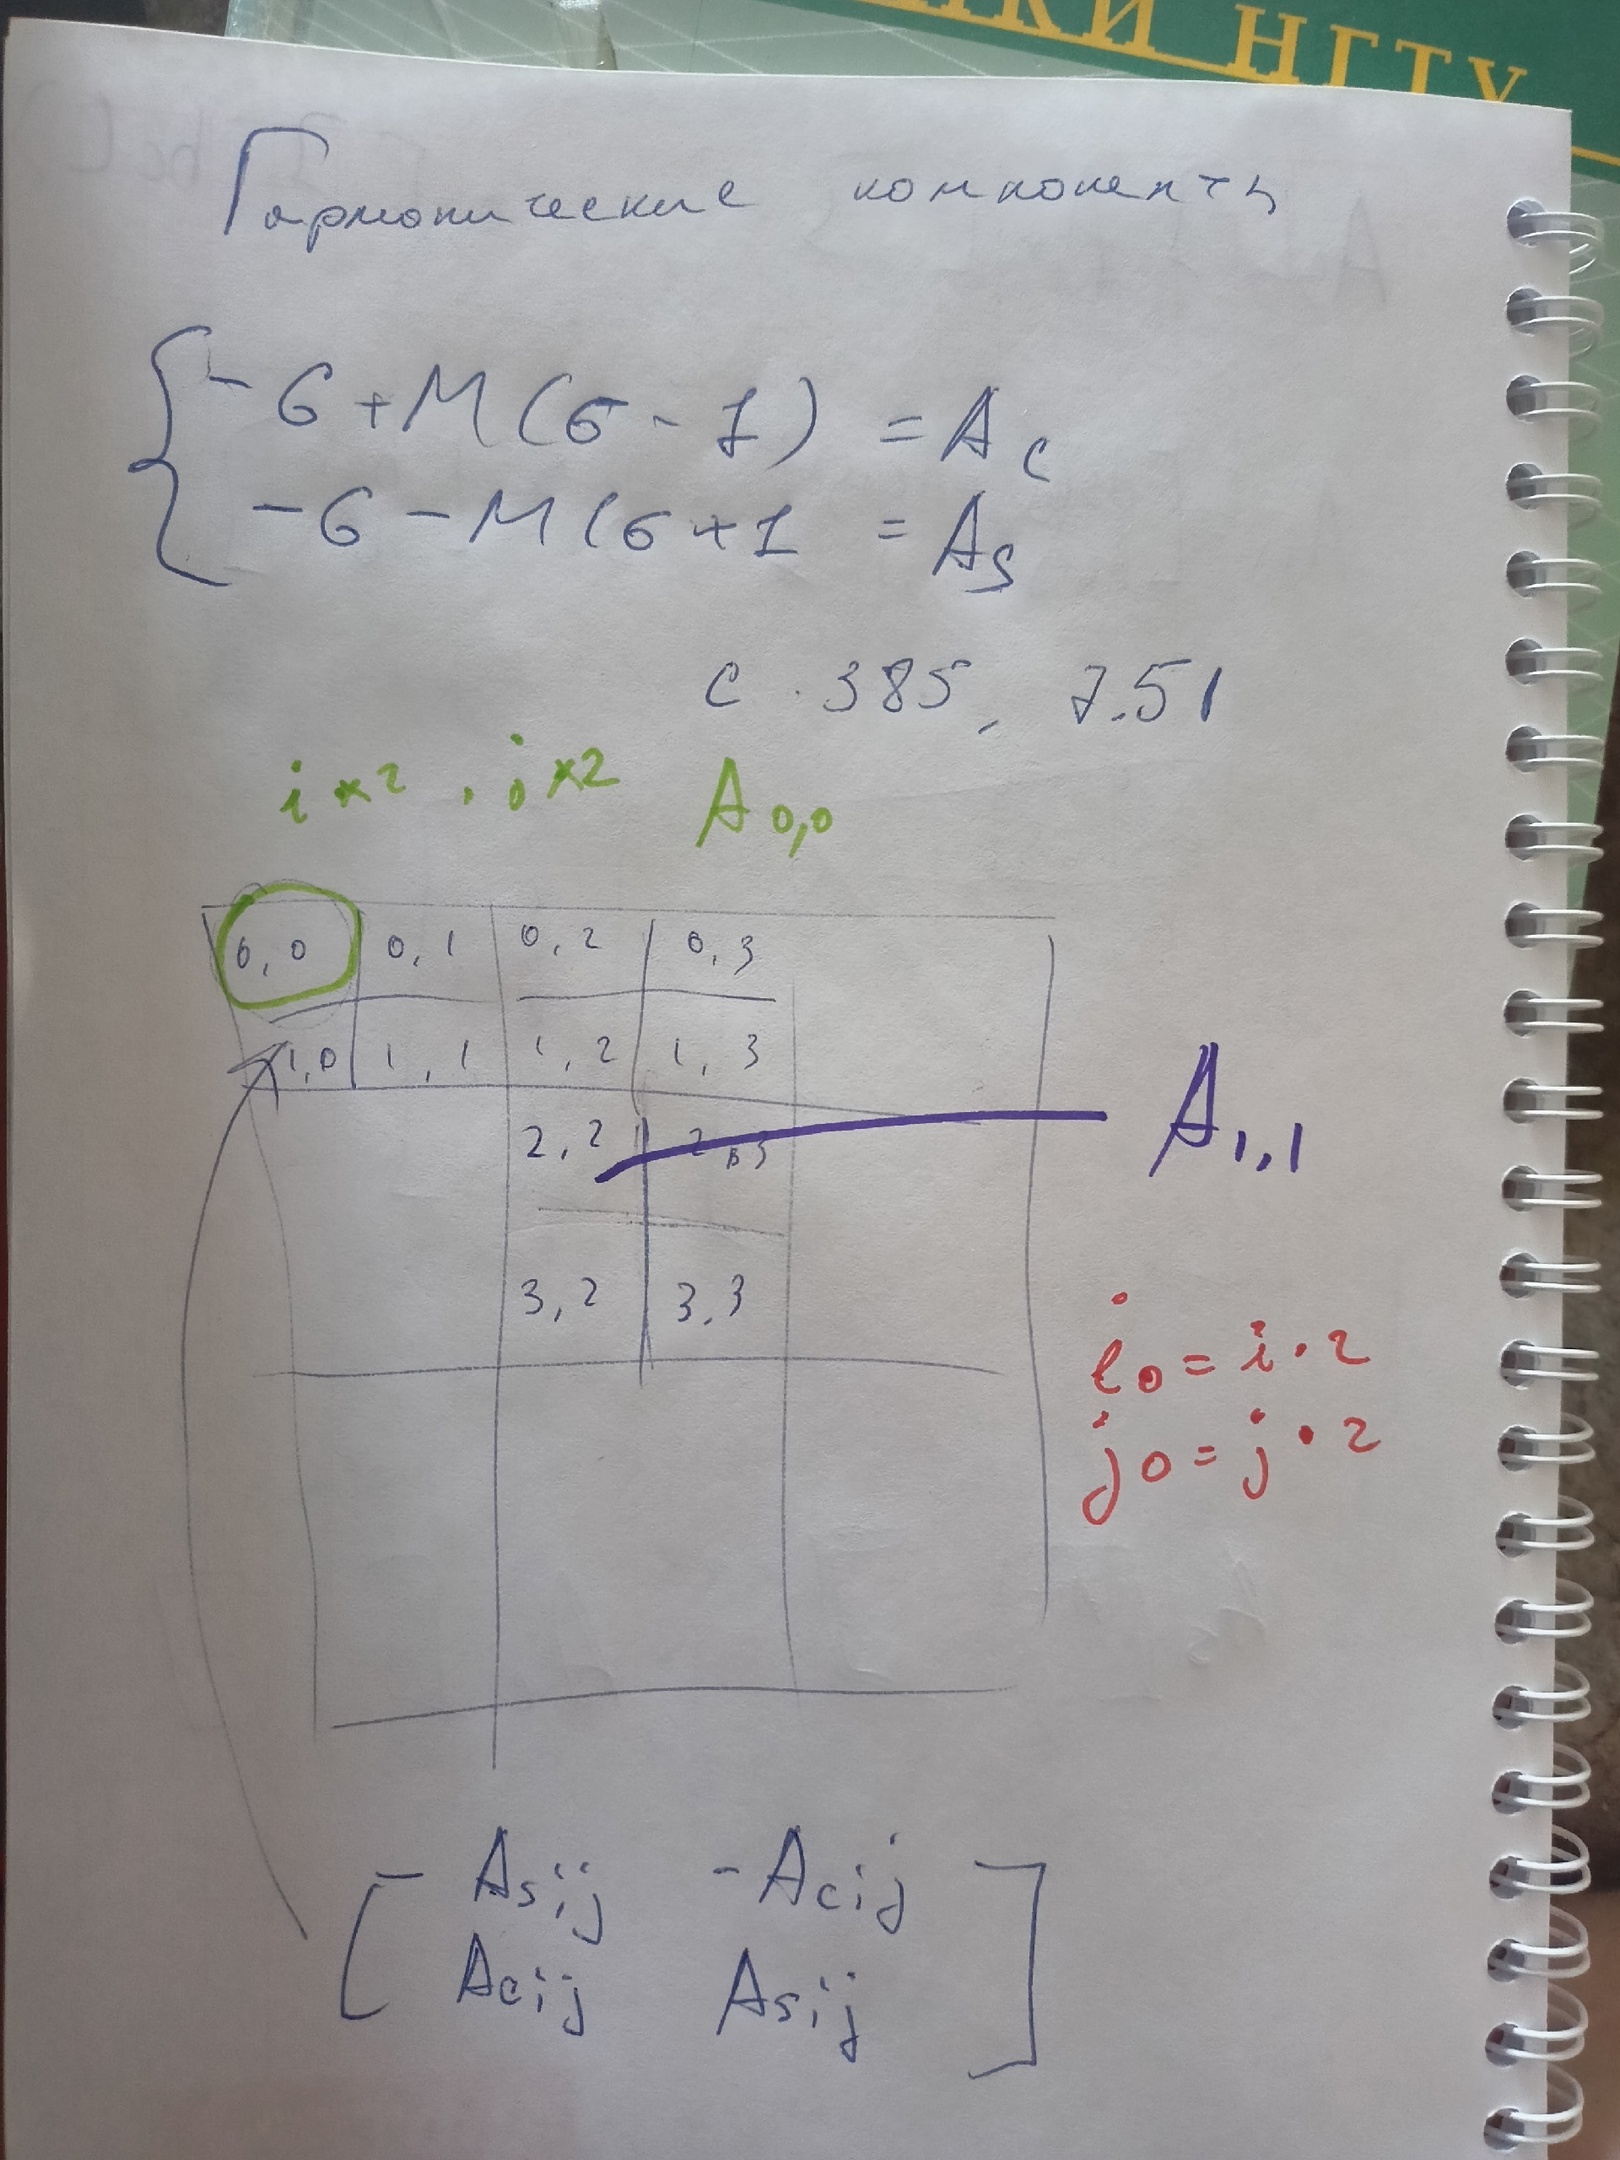 ИКИ НГТУ
Гармонические компоненты
- G + M (σ - 1) = Ac
- G - M (σ + 1 = As
с. 385, 7.51
i*2, j*2 A0,0
0,0 0,1 0,2 0,3
1,0 1,1 1,2 1,3
2,2 2,3 A1,1
3,2 3,3
i0 = i·2
j0 = j·2
- Asij -Acij
Acij Asij